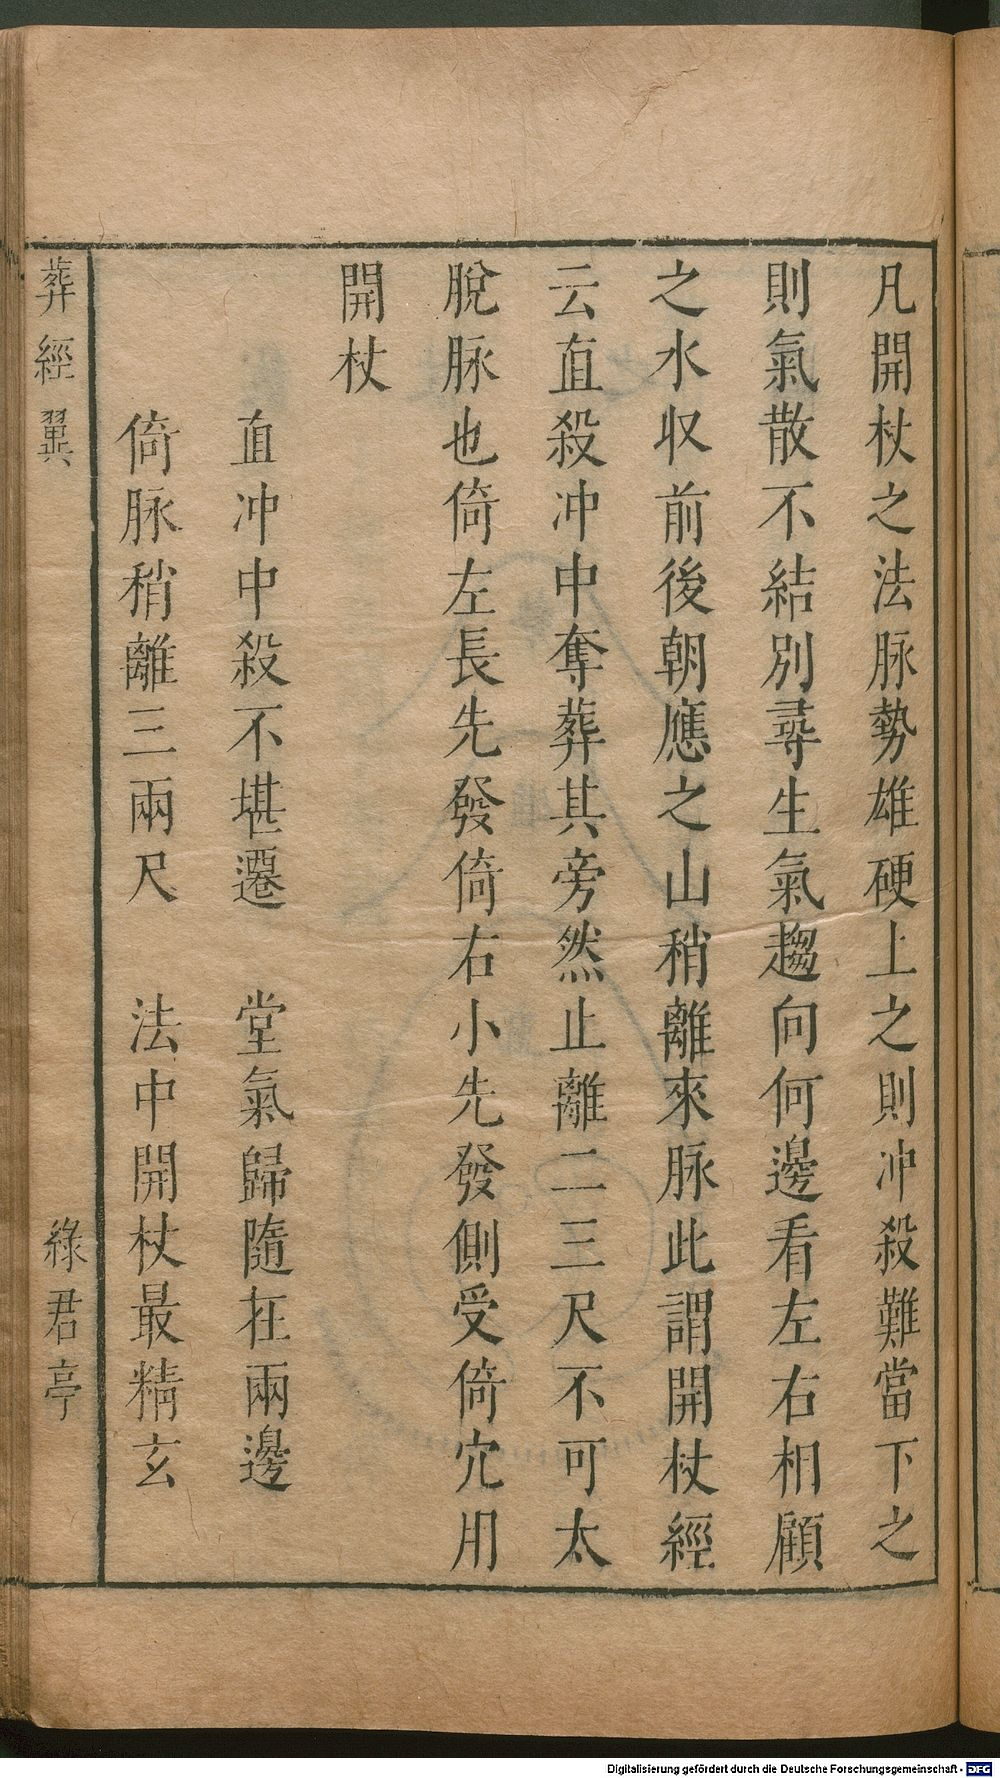 凡開杖之法脉勢雄硬上之則冲殺難當下之
則氣散不結別尋生氣趨向何邊看左右相顧
之水収前後朝應之山稍離來脉此謂開杖經
云直殺冲中奪葬其旁然止離二三尺不可太
脫脉也倚左長先發倚右小先發側受倚穴用
開杖
直冲中殺不堪遷　堂氣歸隨在兩邊
倚脉稍離三兩尺　法中開杖最精玄
葬經翼　綠君亭
Digitalisierung gefördert durch die Deutsche Forschungsgemeinschaft - DFG